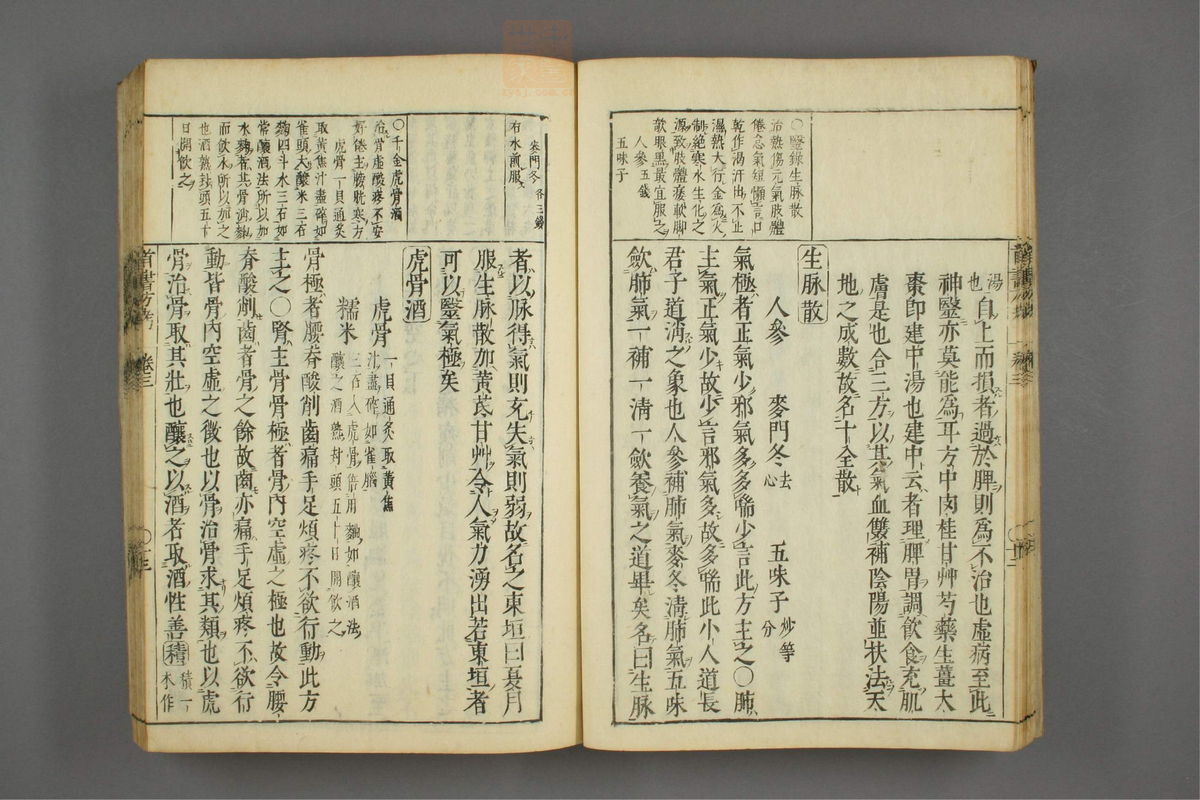 ○醫錄生脉散
治熱傷元氣肢體
倦怠氣短懶言口
乾作渴汗出不止
濕熱大行金為火
制絕寒水生化之
源致肢體痿軟脚
欹眼黑最宜服之
人參五錢
五味子
湯也自上而損者過於脾則為不治也虛病至此
神醫亦莫能為耳方中肉桂甘艸芍藥生薑大
棗卽建中湯也建中云者理脾胃調飲食充肌
膚是也合三方以其氣血雙補陰陽並扶法天
地之成數故名十全散
生脉散
人參 麥門冬去心 五味子炒等分
氣極者正氣少邪氣多多喘少言此方主之○肺
主氣正氣少故少言邪氣多故多喘此小人道長
君子道消之象也人參補肺氣麥冬清肺氣五味
歛肺氣一補一清一歛養氣之道畢矣名曰生脉
麥門冬各三錢
右水煎服
○千金虎骨酒
治骨虛酸疼不安
好倦主膀胱寒方
虎骨一具通炙
取黃焦汁盡碎如
雀頭大釀米三石
麹四斗水三石如
常釀酒法所以加
水麹者其骨消麹
而飲水所以加之
也酒熟封頭五十
日開飲之
者以脉得氣則充失氣則弱故名之東垣曰夏月
服生脉散加黃芪甘艸令人氣力湧出若東垣者
可以醫氣極矣
虎骨酒
虎骨一具通炙取黃焦汁盡碎如雀腦
糯米三石入虎骨倍用麹如釀酒法釀之酒熟封頭五十日開飲之
骨極者腰脊酸削齒痛手足煩疼不欲行動此方
主之○腎主骨骨極者骨內空虛之極也故令腰
脊酸削齒者骨之餘故齒亦痛手足煩疼不欲行
動皆骨內空虛之徵也以骨治骨求其類也以虎
骨治骨取其壯也釀之以酒者取酒性善積積一本作
首書方考 卷三